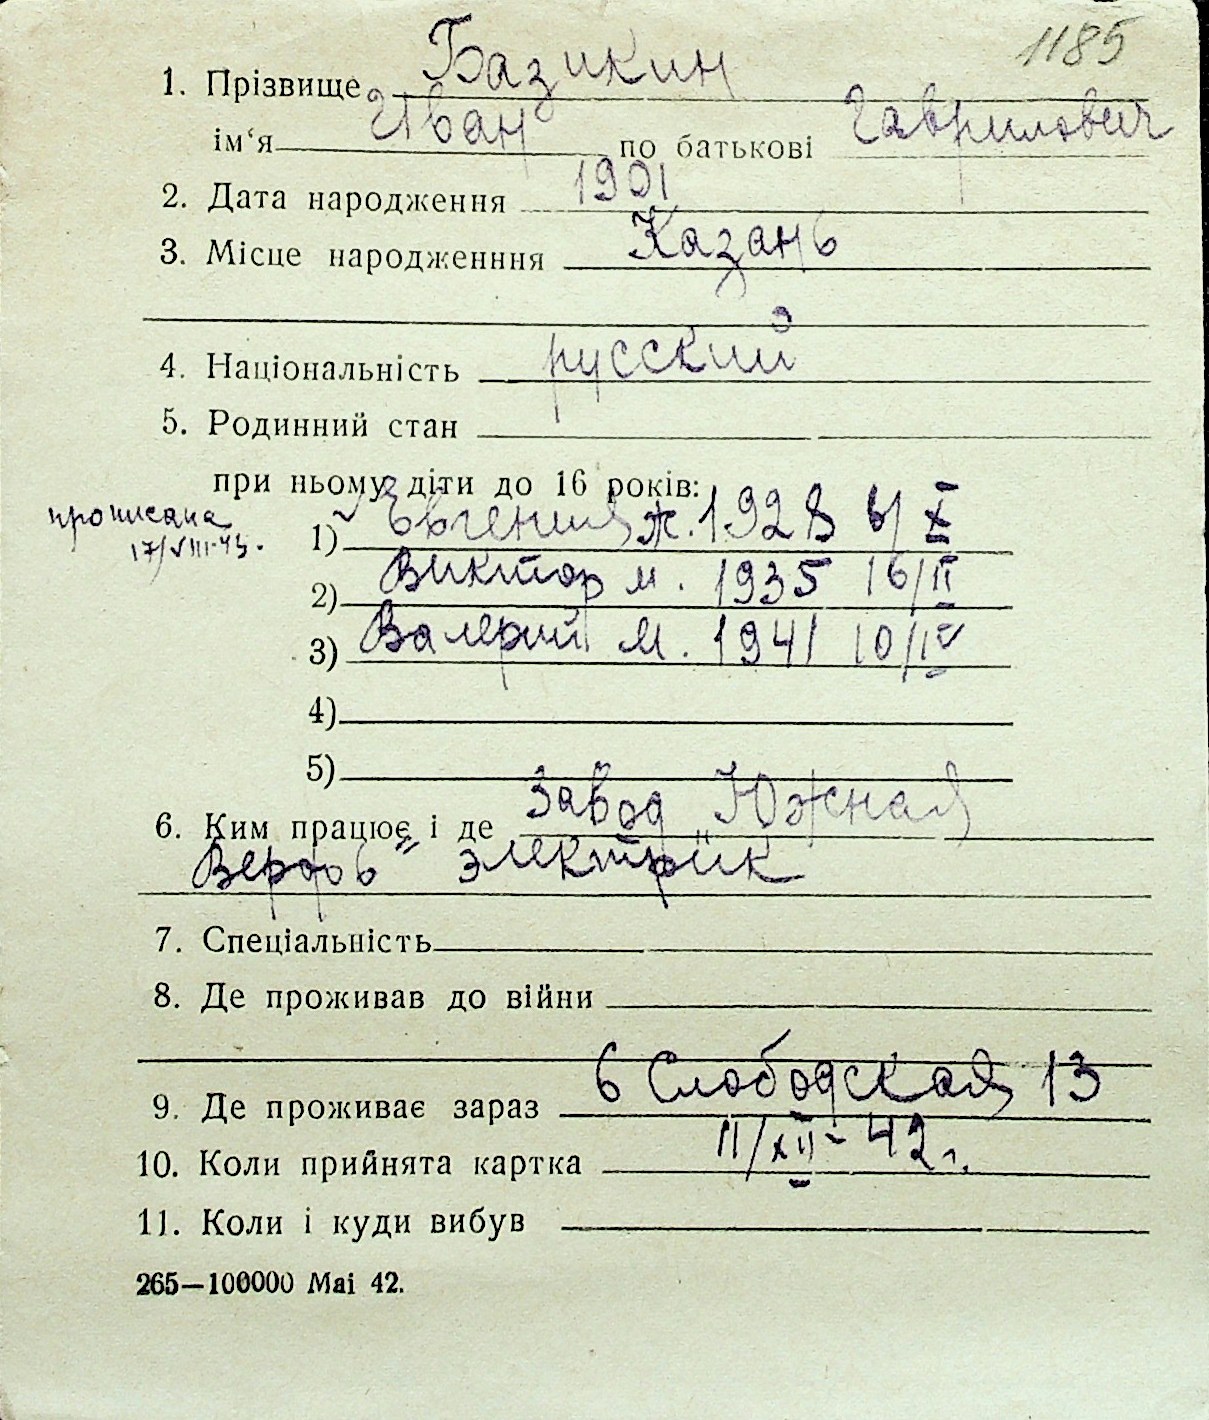 1185
1. Прізвище Базикин
ім‘я Иван по батькові Гаврилович
2. Дата народження 1901
3. Місце народженння Казань
4. Національність русский
5. Родинний стан
при ньому діти до 16 років:
прописана
17/VIII-43.
1) Евгения ж. 1928 6/X
2) Виктор м. 1935 16/II
3) Валерий м. 1941 10/IV
4)
5)
6. Ким працює і де завод "Южная
Верфь" электрик
7. Спеціальність
8. Де проживав до війни
9. Де проживає зараз 6 Слободская 13
10. Коли прийнята картка 11/XII-42 г.
11. Коли і куди вибув
265—100000 Mai 42.